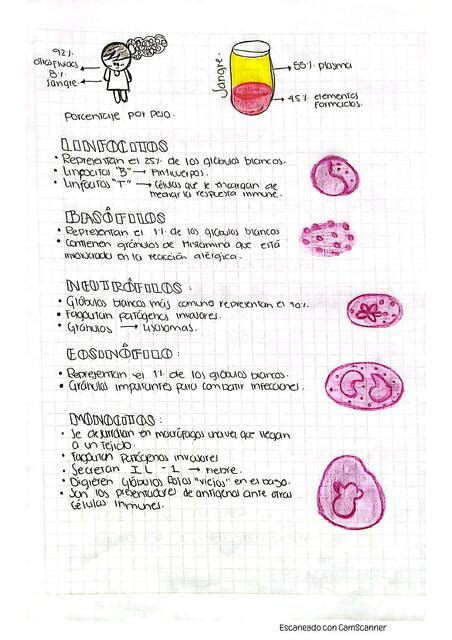 92%
otros fluidos
8%
sangre
Porcentaje por peso.
Sangre.
55% plasma
45% elementos
formados.
LINFOCITOS
• Representan el 25% de los glóbulos blancos.
• Linfocitos "B" → Anticuerpos.
• Linfocitos "T" → Células que se encargan de
mediar la respuesta inmune.
BASÓFILOS
• Representan el 1% de los glóbulos blancos
• Contienen gránulos de Histamina que está
involucrada en la reacción alérgica.
NEUTRÓFILOS:
• Glóbulos blancos más comunes representan el 70%.
• Fagocitan patógenos invasores.
• Gránulos → Lisosomas.
EOSINÓFILO:
• Representan el 1% de los glóbulos blancos.
• Gránulos importantes para combatir infecciones.
MONOCITOS:
• Se desarrollan en macrófagos una vez que llegan
a un tejido.
• Fagocitan patógenos invasores
• Secretan IL-1 → fiebre.
• Digieren glóbulos rojos "viejos" en el bazo.
• Son los presentadores de antígenos ante otras
células inmunes.
Escaneado con CamScanner